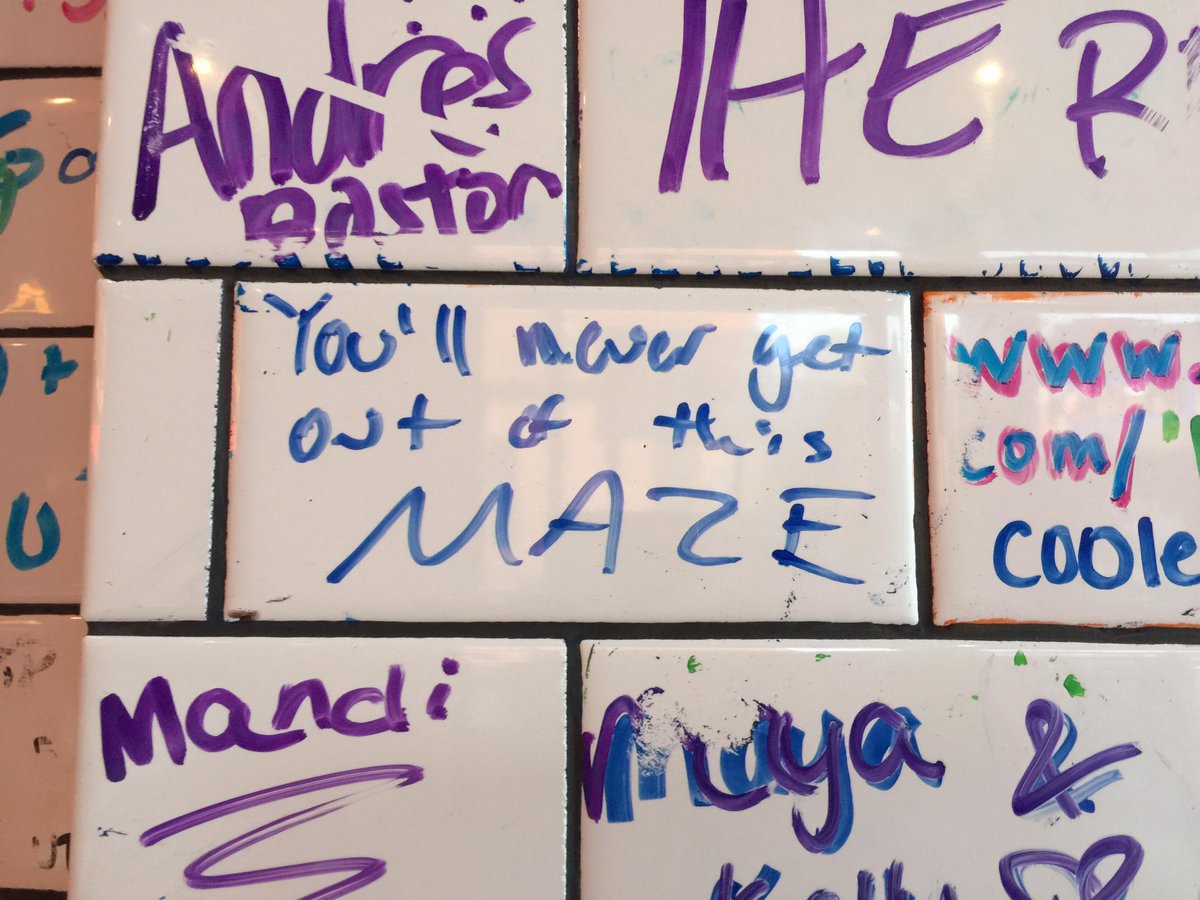 Andres
pastor
HER
You'll never get
out of this
MAZE
www.
com/
coole
Mandi
Maya &
Kelly